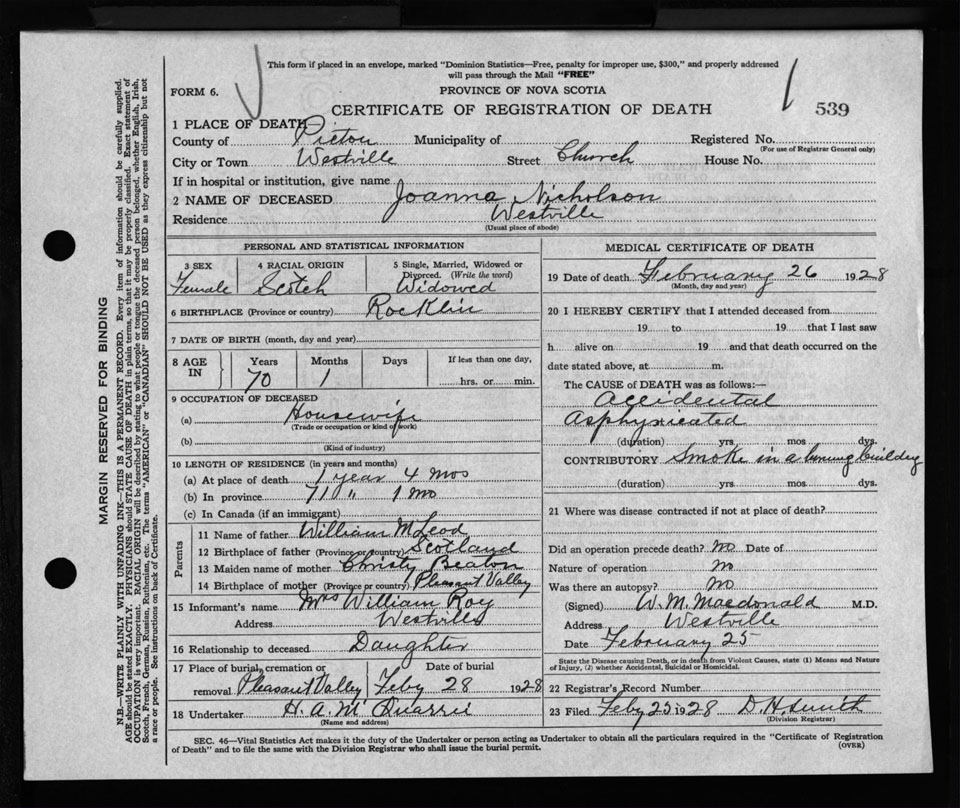 This form if placed in an envelope, marked "Dominion Statistics—Free, penalty for improper use, $300," and properly addressed
will pass through the Mail "FREE"
FORM 6.
PROVINCE OF NOVA SCOTIA
CERTIFICATE OF REGISTRATION OF DEATH
539
1 PLACE OF DEATH
County of Pictou Municipality of Registered No.
(For use of Registrar General only)
City or Town Westville Street Church House No.
If in hospital or institution, give name
2 NAME OF DECEASED Joanna Nicholson
Residence Westville
(Usual place of abode)
PERSONAL AND STATISTICAL INFORMATION
3 SEX 4 RACIAL ORIGIN 5 Single, Married, Widowed or
Divorced. (Write the word)
Female Scotch Widowed
6 BIRTHPLACE (Province or country) Rocklin
7 DATE OF BIRTH (month, day and year)
8 AGE IN Years Months Days If less than one day,
70 1 hrs. or min.
9 OCCUPATION OF DECEASED
(a) Housewife
(Trade or occupation or kind of work)
(b)
(Kind of industry)
10 LENGTH OF RESIDENCE (in years and months)
(a) At place of death 1 year 4 mos
(b) In province 71 " 1 mo
(c) In Canada (if an immigrant)
Parents
11 Name of father William McLeod
12 Birthplace of father (Province or country) Scotland
13 Maiden name of mother Christy Beaton
14 Birthplace of mother (Province or country) Pleasant Valley
15 Informant's name Mrs William Roy
Address Westville
16 Relationship to deceased Daughter
17 Place of burial, cremation or Date of burial
removal Pleasant Valley Feby 28 1928
18 Undertaker H. A. McQuarrie
(Name and address)
MEDICAL CERTIFICATE OF DEATH
19 Date of death February 26 1928
(Month, day and year)
20 I HEREBY CERTIFY that I attended deceased from
19 to 19 that I last saw
h alive on 19 and that death occurred on the
date stated above, at m.
The CAUSE of DEATH was as follows:—
Accidental
Asphyxicated
(duration) yrs. mos. dys.
CONTRIBUTORY Smoke in a burning building
(duration) yrs. mos. dys.
21 Where was disease contracted if not at place of death?
Did an operation precede death? no Date of
Nature of operation no
Was there an autopsy? no
(Signed) W. M. Macdonald M.D.
Address Westville
Date February 25
State the Disease causing Death, or in death from Violent Causes, state (1) Means and Nature
of Injury, (2) whether Accidental, Suicidal or Homicidal.
22 Registrar's Record Number
23 Filed Feby 25 1928 D. H. Smith
(Division Registrar)
SEC. 46—Vital Statistics Act makes it the duty of the Undertaker or person acting as Undertaker to obtain all the particulars required in the "Certificate of Registration
of Death" and to file the same with the Division Registrar who shall issue the burial permit.
(OVER)
MARGIN RESERVED FOR BINDING
N.B.—WRITE PLAINLY WITH UNFADING INK—THIS IS A PERMANENT RECORD. Every item of information should be carefully supplied.
AGE should be stated EXACTLY. PHYSICIANS should STATE CAUSE OF DEATH in plain terms, so that it may be properly classified. Exact statement of
OCCUPATION is very important. RACIAL ORIGIN will be described by stating to what people or tongue the deceased person belonged, whether English, Irish,
Scotch, French, German, Russian, Ruthenian, etc. The terms "AMERICAN" or "CANADIAN" SHOULD NOT BE USED as they express citizenship but not
a race or people. See instructions on back of Certificate.